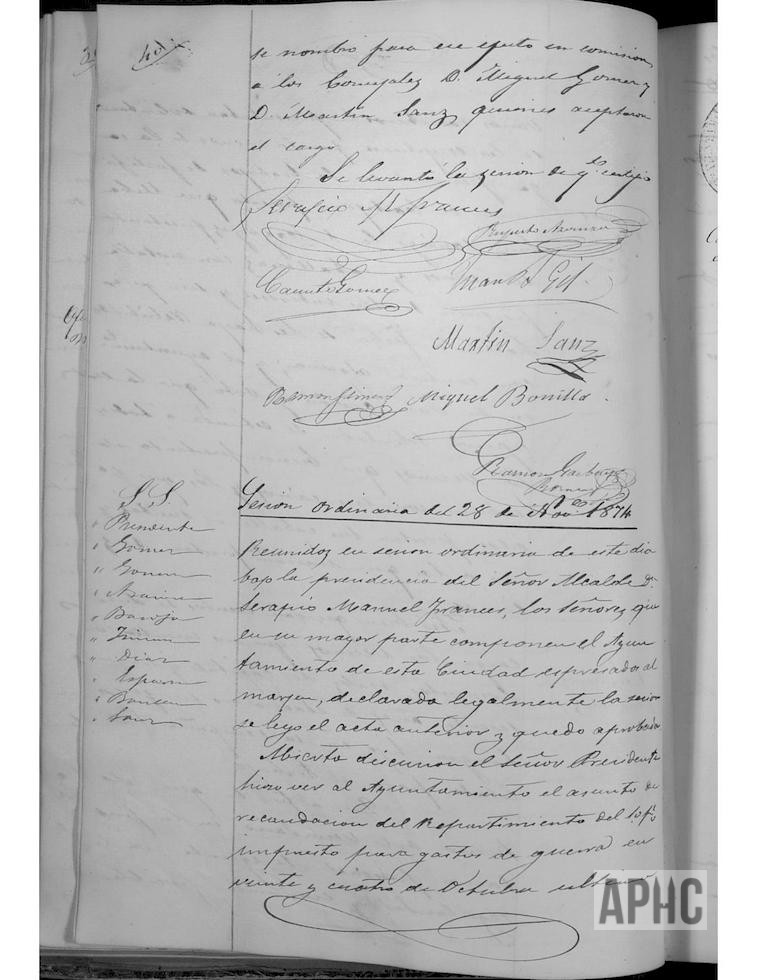 se nombro para ese efecto en comision,
a los Concejales D. Miguel Gomez y
D. Martin Sanz, quienes aceptaron
el cargo
Se levantó la sesion de q.e certifico
Serafio M. Frances
Ruperto
Gomez
Gil
Martin Sanz
Ramon Miguel Bonilla.
Ramon
S S
Sesion ordinaria del 28 de Nov. 1874
" Presidente
" Gomez
" Baroja
" Diaz
" Esparza
" Sanz
Reunidos en sesion ordinaria de este dia
bajo la presidencia del Señor Alcalde Dn
Serapio Manuel Frances, los señores que
en su mayor parte componen el Ayun
tamiento de esta Ciudad espresados al
marjen, declarada legalmente la sesion
se leyo el acta anterior y quedo aprobada
Abierta discusion el Señor Presidente
hizo ver al Ayuntamiento el asunto de
recaudacion del Repartimiento del
impuesto para gastos de guerra en
veinte y cuatro de Octubre ultimo
APHC